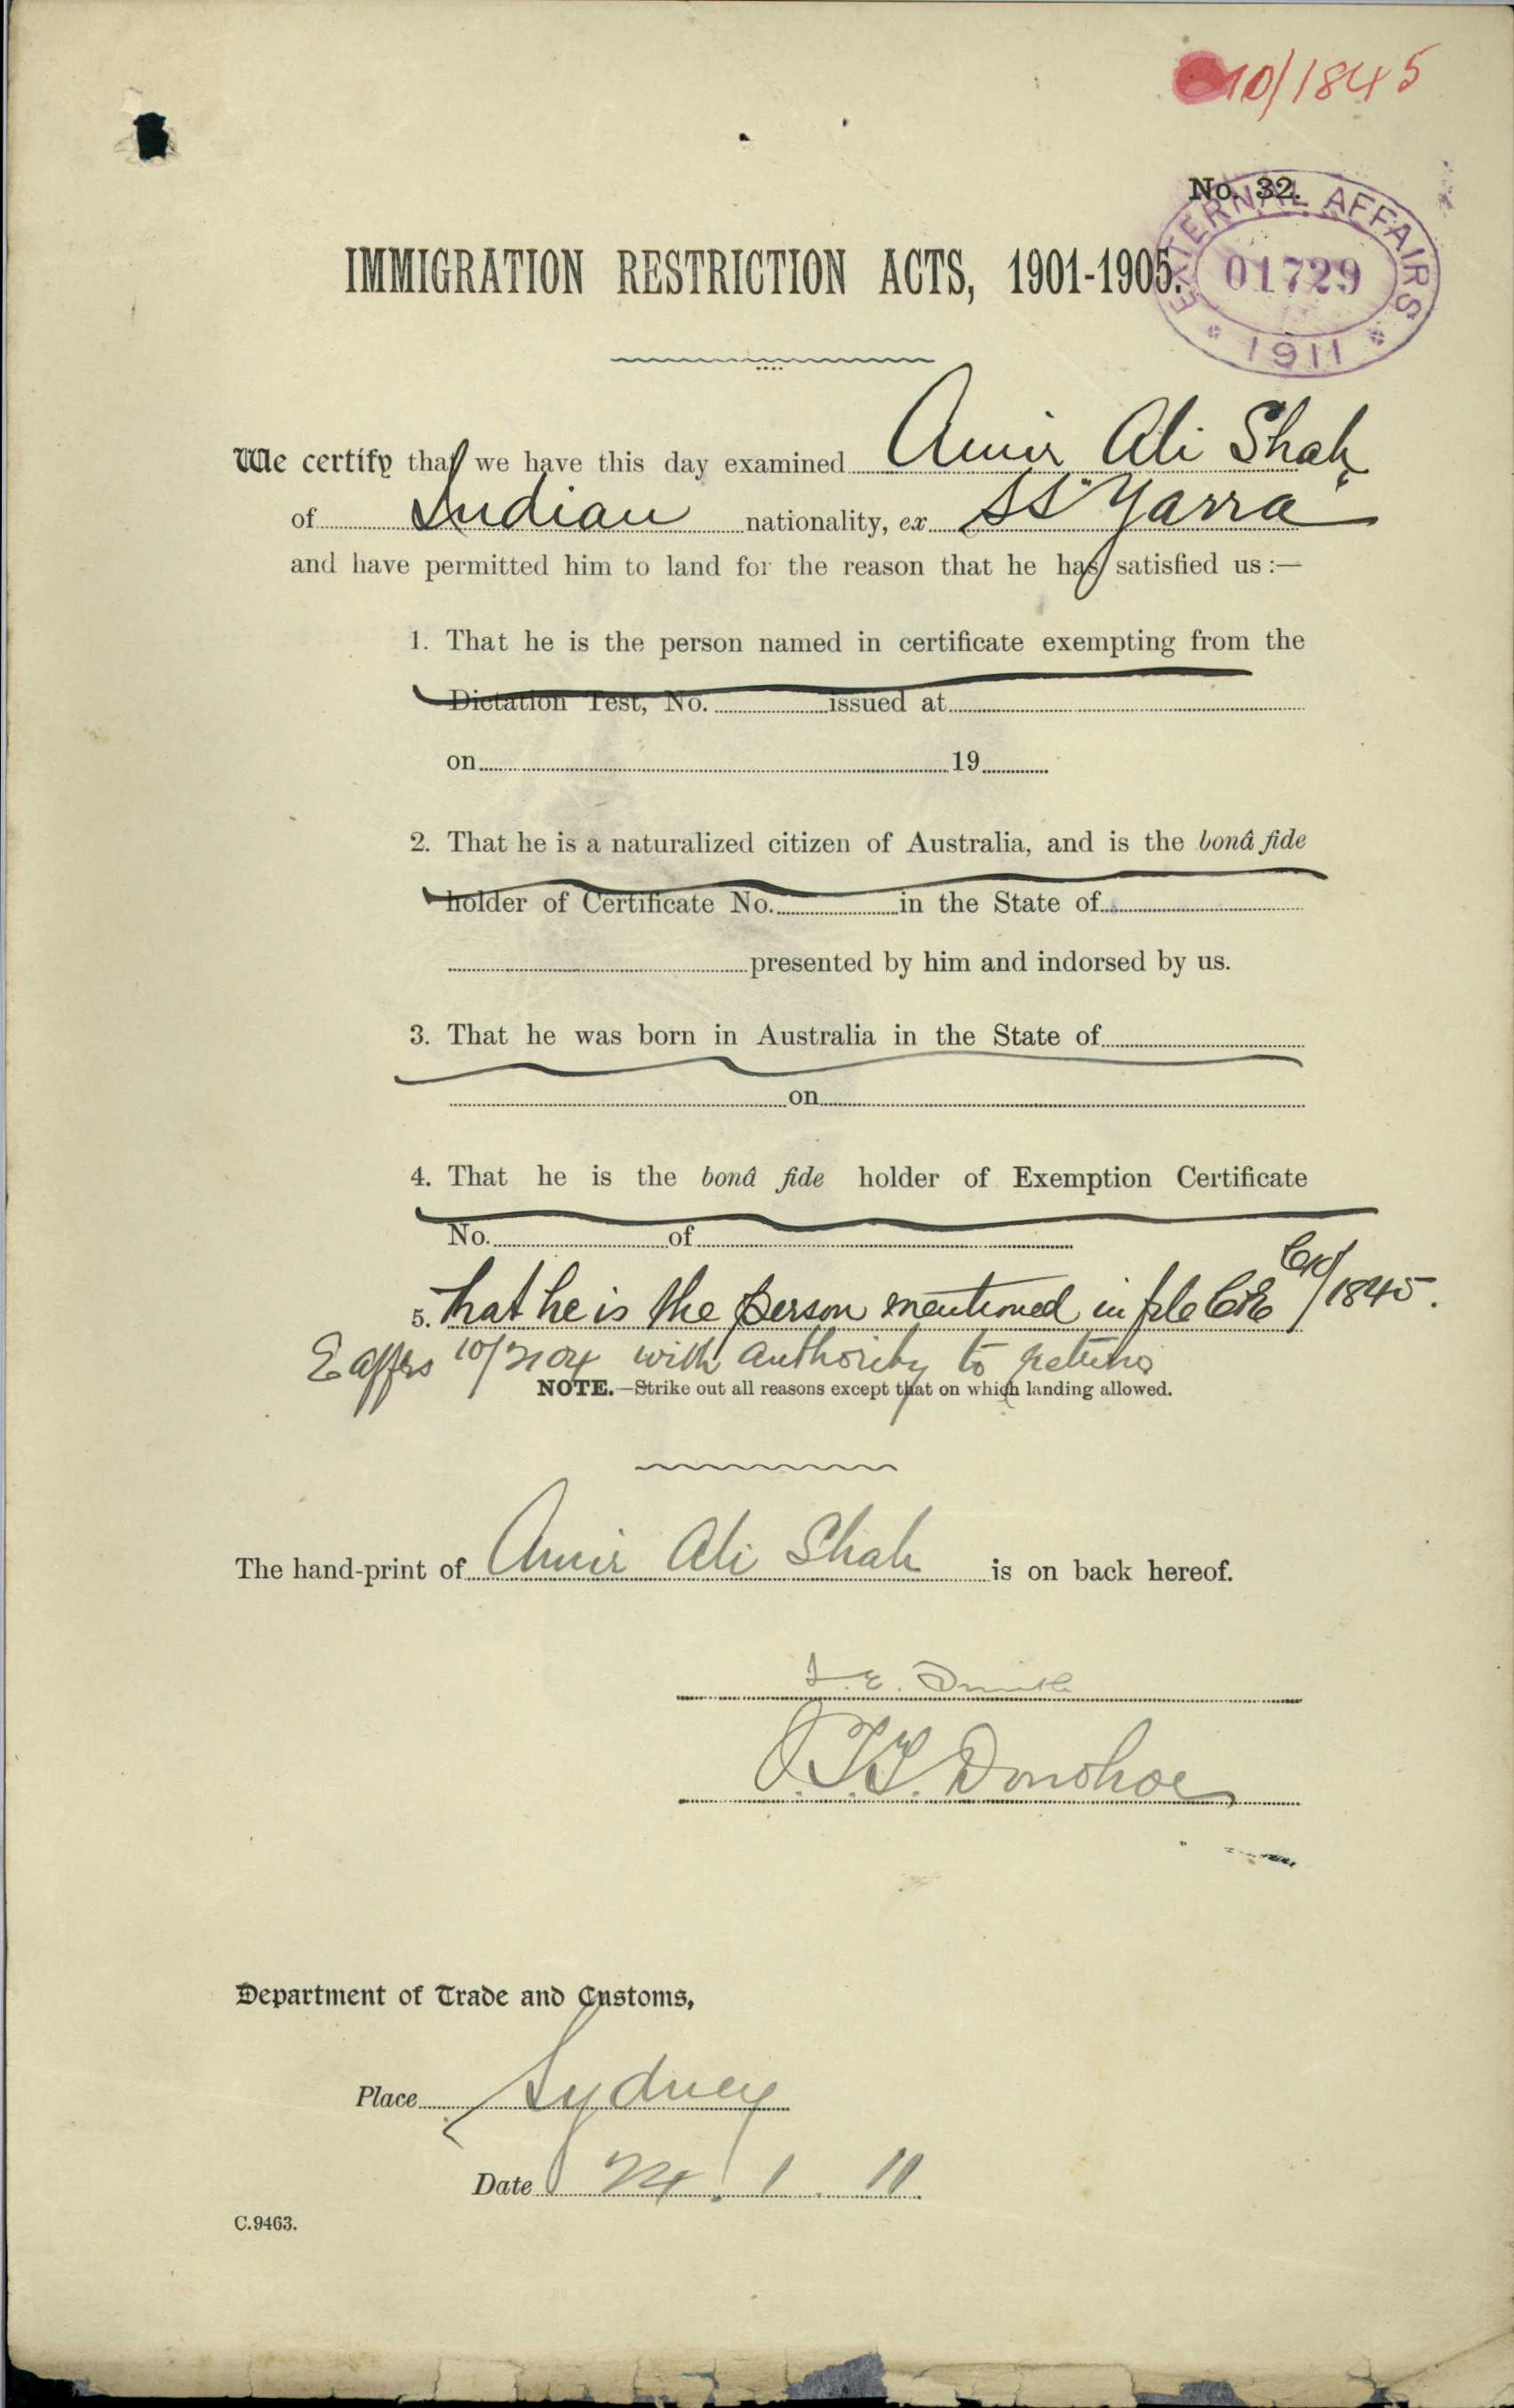 10/1845
No. 32.
EXTERNAL AFFAIRS
01729
1911
IMMIGRATION RESTRICTION ACTS, 1901-1905.
We certify that we have this day examined Amir Ali Shah
of Indian nationality, ex SS "Yarra"
and have permitted him to land for the reason that he has satisfied us :—
1. That he is the person named in certificate exempting from the
Dictation Test, No. issued at
on 19
2. That he is a naturalized citizen of Australia, and is the bonâ fide
holder of Certificate No. in the State of
presented by him and indorsed by us.
3. That he was born in Australia in the State of
on
4. That he is the bonâ fide holder of Exemption Certificate
No. of
5. that he is the person mentioned in file /1845.
E affrs 10/2104 with authority to return
NOTE.—Strike out all reasons except that on which landing allowed.
The hand-print of Amir Ali Shah is on back hereof.
Donohoe
Department of Trade and Customs,
Place Sydney
Date 24. 1. 11
C.9463.